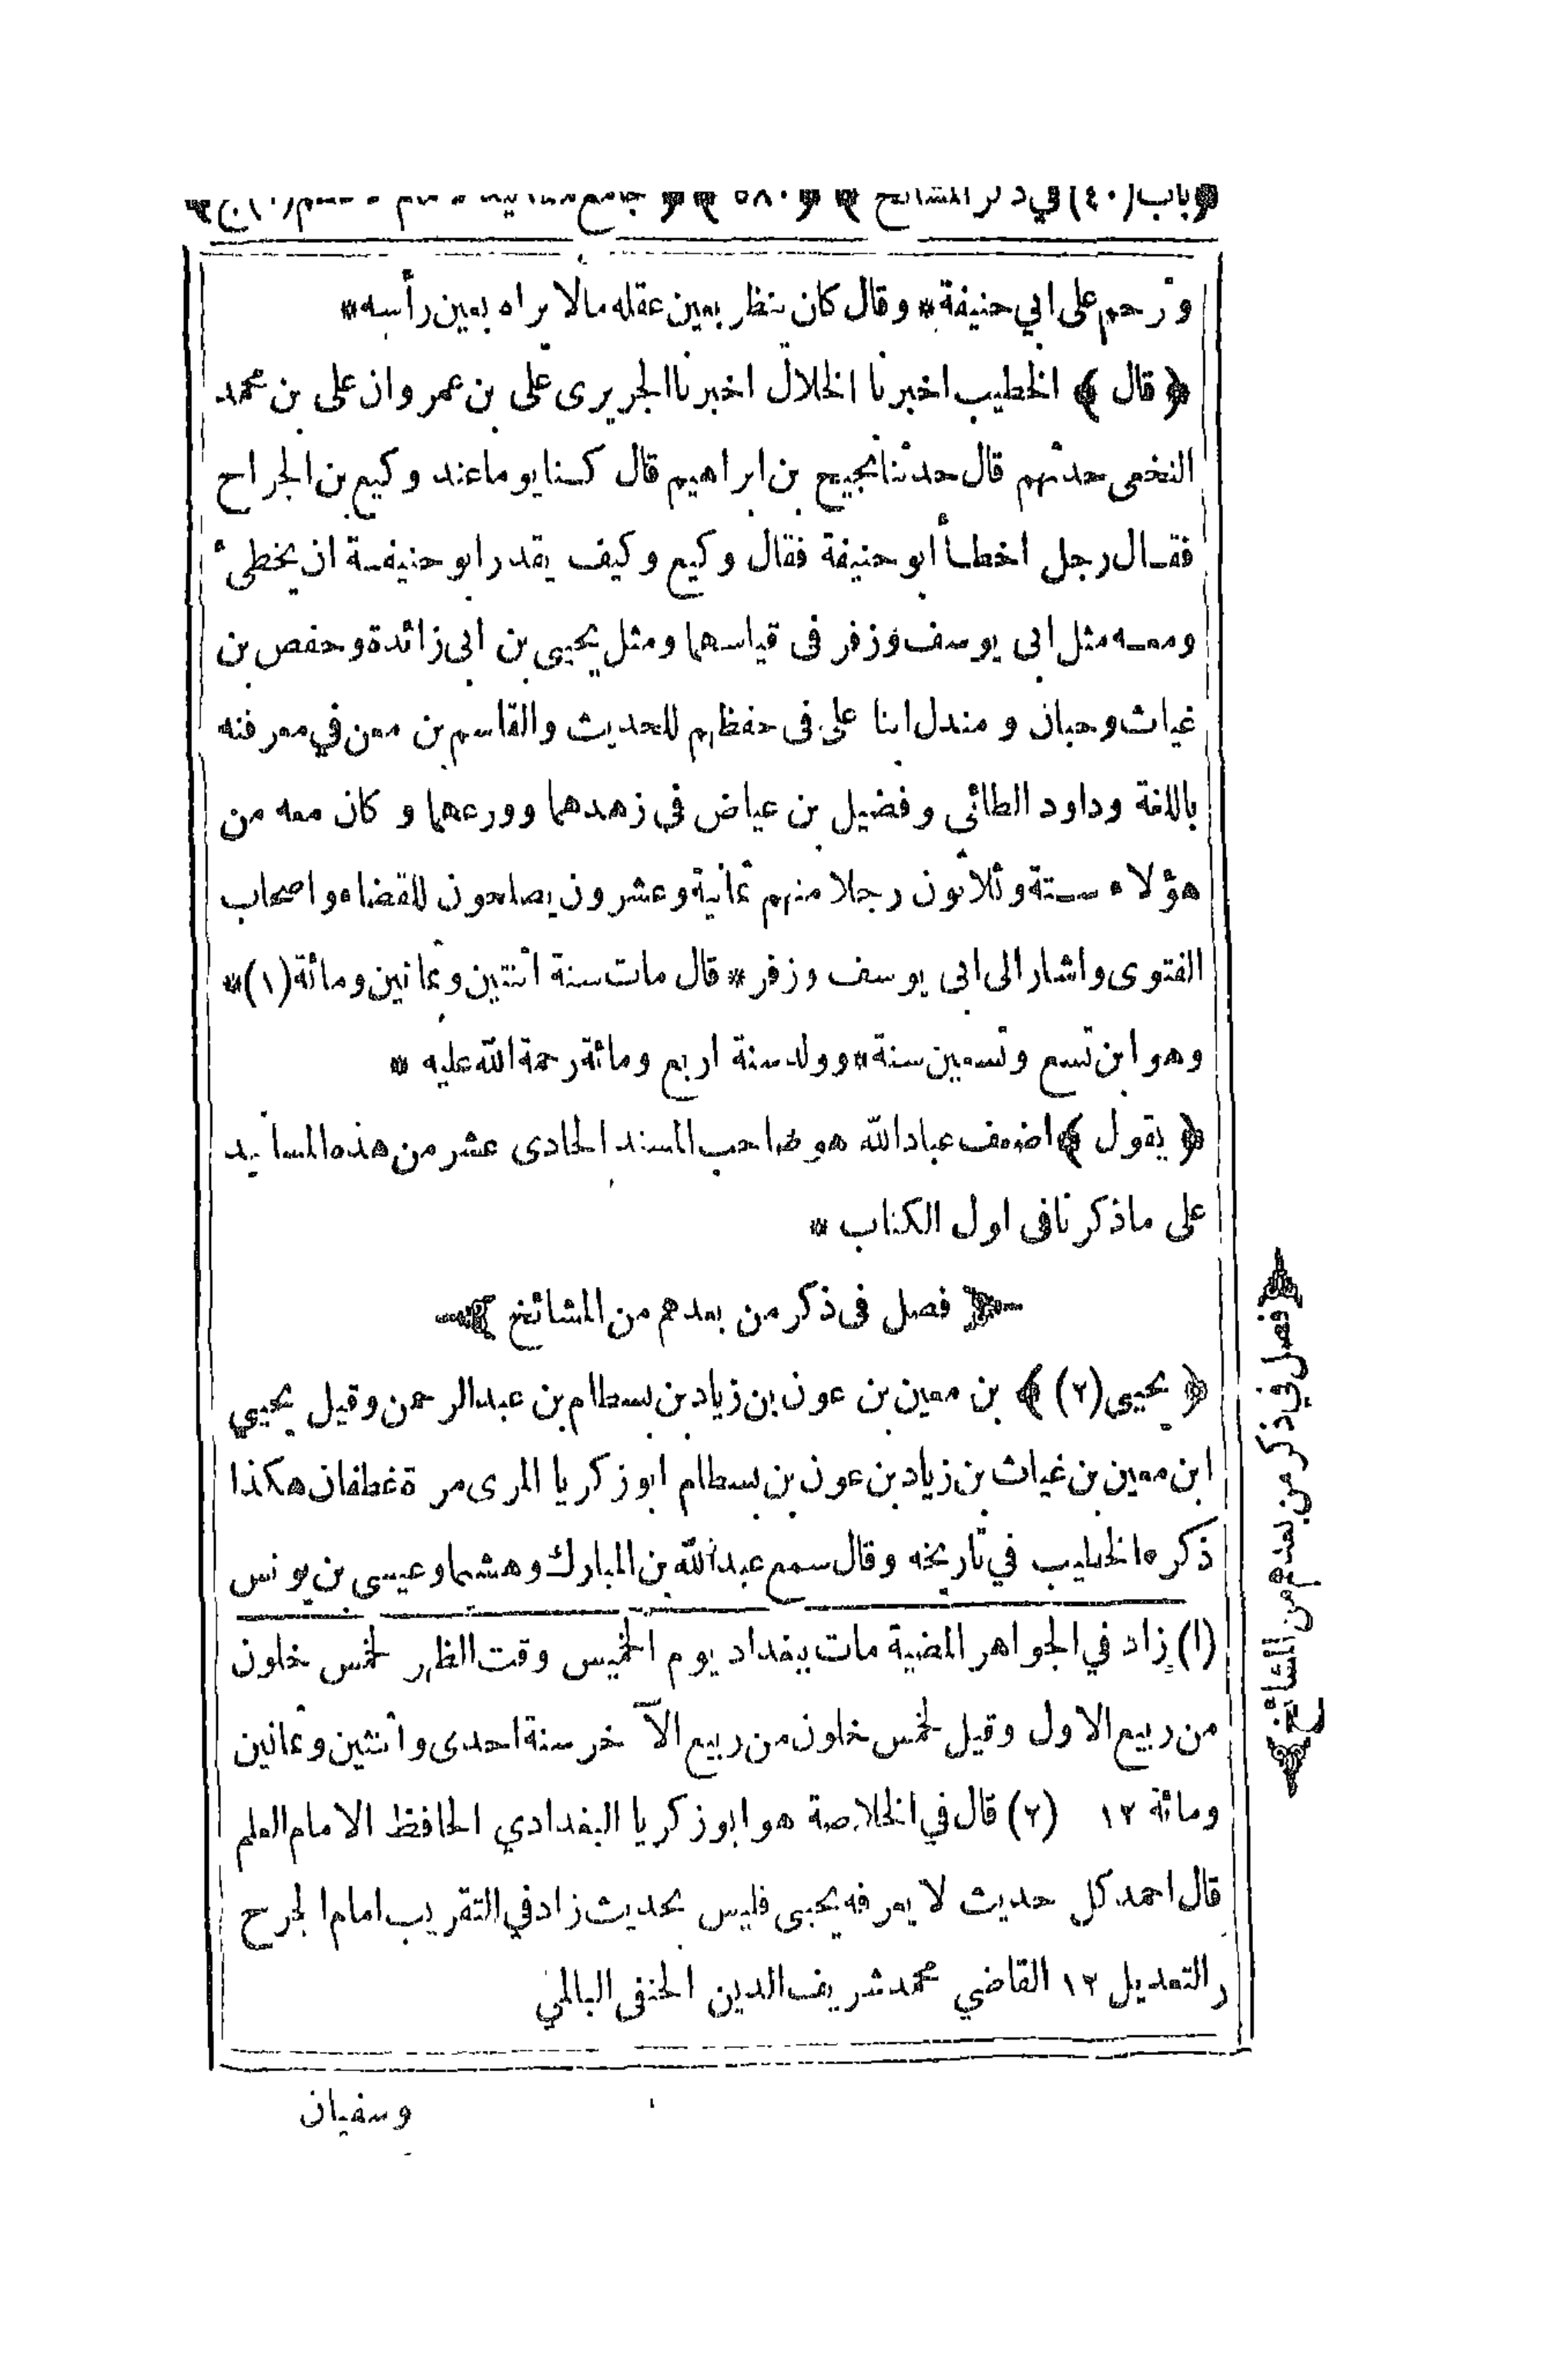 ﴿باب (٤٠) في ذكر المشائخ﴾ ﴿٥٨٠﴾
وترحم على ابي حنيفة * وقال كان ينظر بعين عقله مالا يراه بعين رأسه *
﴿ قال ﴾ الخطيب اخبرنا الخلال اخبرنا الجريرى على بن عمر وان على بن محمد
النخعى حدثهم قال حدثنا نجيح بن ابراهيم قال كنا يوما عند وكيع بن الجراح
فقال رجل اخطأ أبو حنيفة فقال وكيع وكيف يقدر ابو حنيفة ان يخطئ
ومعه مثل ابى يوسف وزفر فى قياسهما ومثل يحيى بن ابى زائدة وحفص بن
غياث وحبان و مندل ابنا على فى حفظهم للحديث والقاسم بن معن في معرفته
باللغة وداود الطائي وفضيل بن عياض فى زهدهما وورعهما و كان معه من
هؤلاء ستة وثلاثون رجلا منهم ثمانية وعشرون يصلحون للقضاء واصحاب
الفتوى واشار الى ابى يوسف وزفر * قال مات سنة اثنتين وثمانين ومائة (١) *
وهو ابن تسع وتسعين سنة * وولد سنة اربع ومائة رحمة الله عليه *
﴿ يقول ﴾ اضعف عباد الله هو صاحب المسند الحادى عشر من هذه المسانيد
على ماذكرنا فى اول الكتاب *
﴿ فصل فى ذكر من بعدهم من المشائخ ﴾
﴿ يحيى (٢) ﴾ بن معين بن عون بن زياد بن بسطام بن عبد الرحمن وقيل يحيي
ابن معين بن غياث بن زياد بن عون بن بسطام ابو زكريا المرى مرة غطفان هكذا
ذكره الخطيب في تاريخه وقال سمع عبد الله بن المبارك وهشيما وعيسى بن يونس
(١) زاد في الجواهر المضية مات ببغداد يوم الخميس وقت الظهر لخمس خلون
من ربيع الاول وقيل لخمس خلون من ربيع الآخر سنة احدى واثنتين وثمانين
ومائة ١٢ (٢) قال في الخلاصة هو ابو زكريا البغدادي الحافظ الامام العلم
قال احمد كل حديث لا يعرفه يحيى فليس بحديث زاد في التقريب امام الجرح
والتعديل ١٢ القاضي محمد شريف الدين الحنفى البالمي
وسفيان
﴿فصل في ذكر من بعدهم من المشائخ﴾